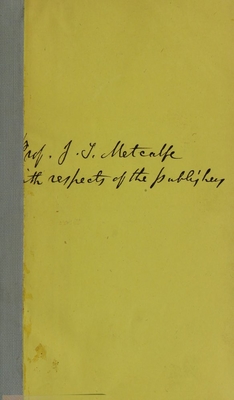 Prof. J. T. Metcalfe
with respects of the publishers